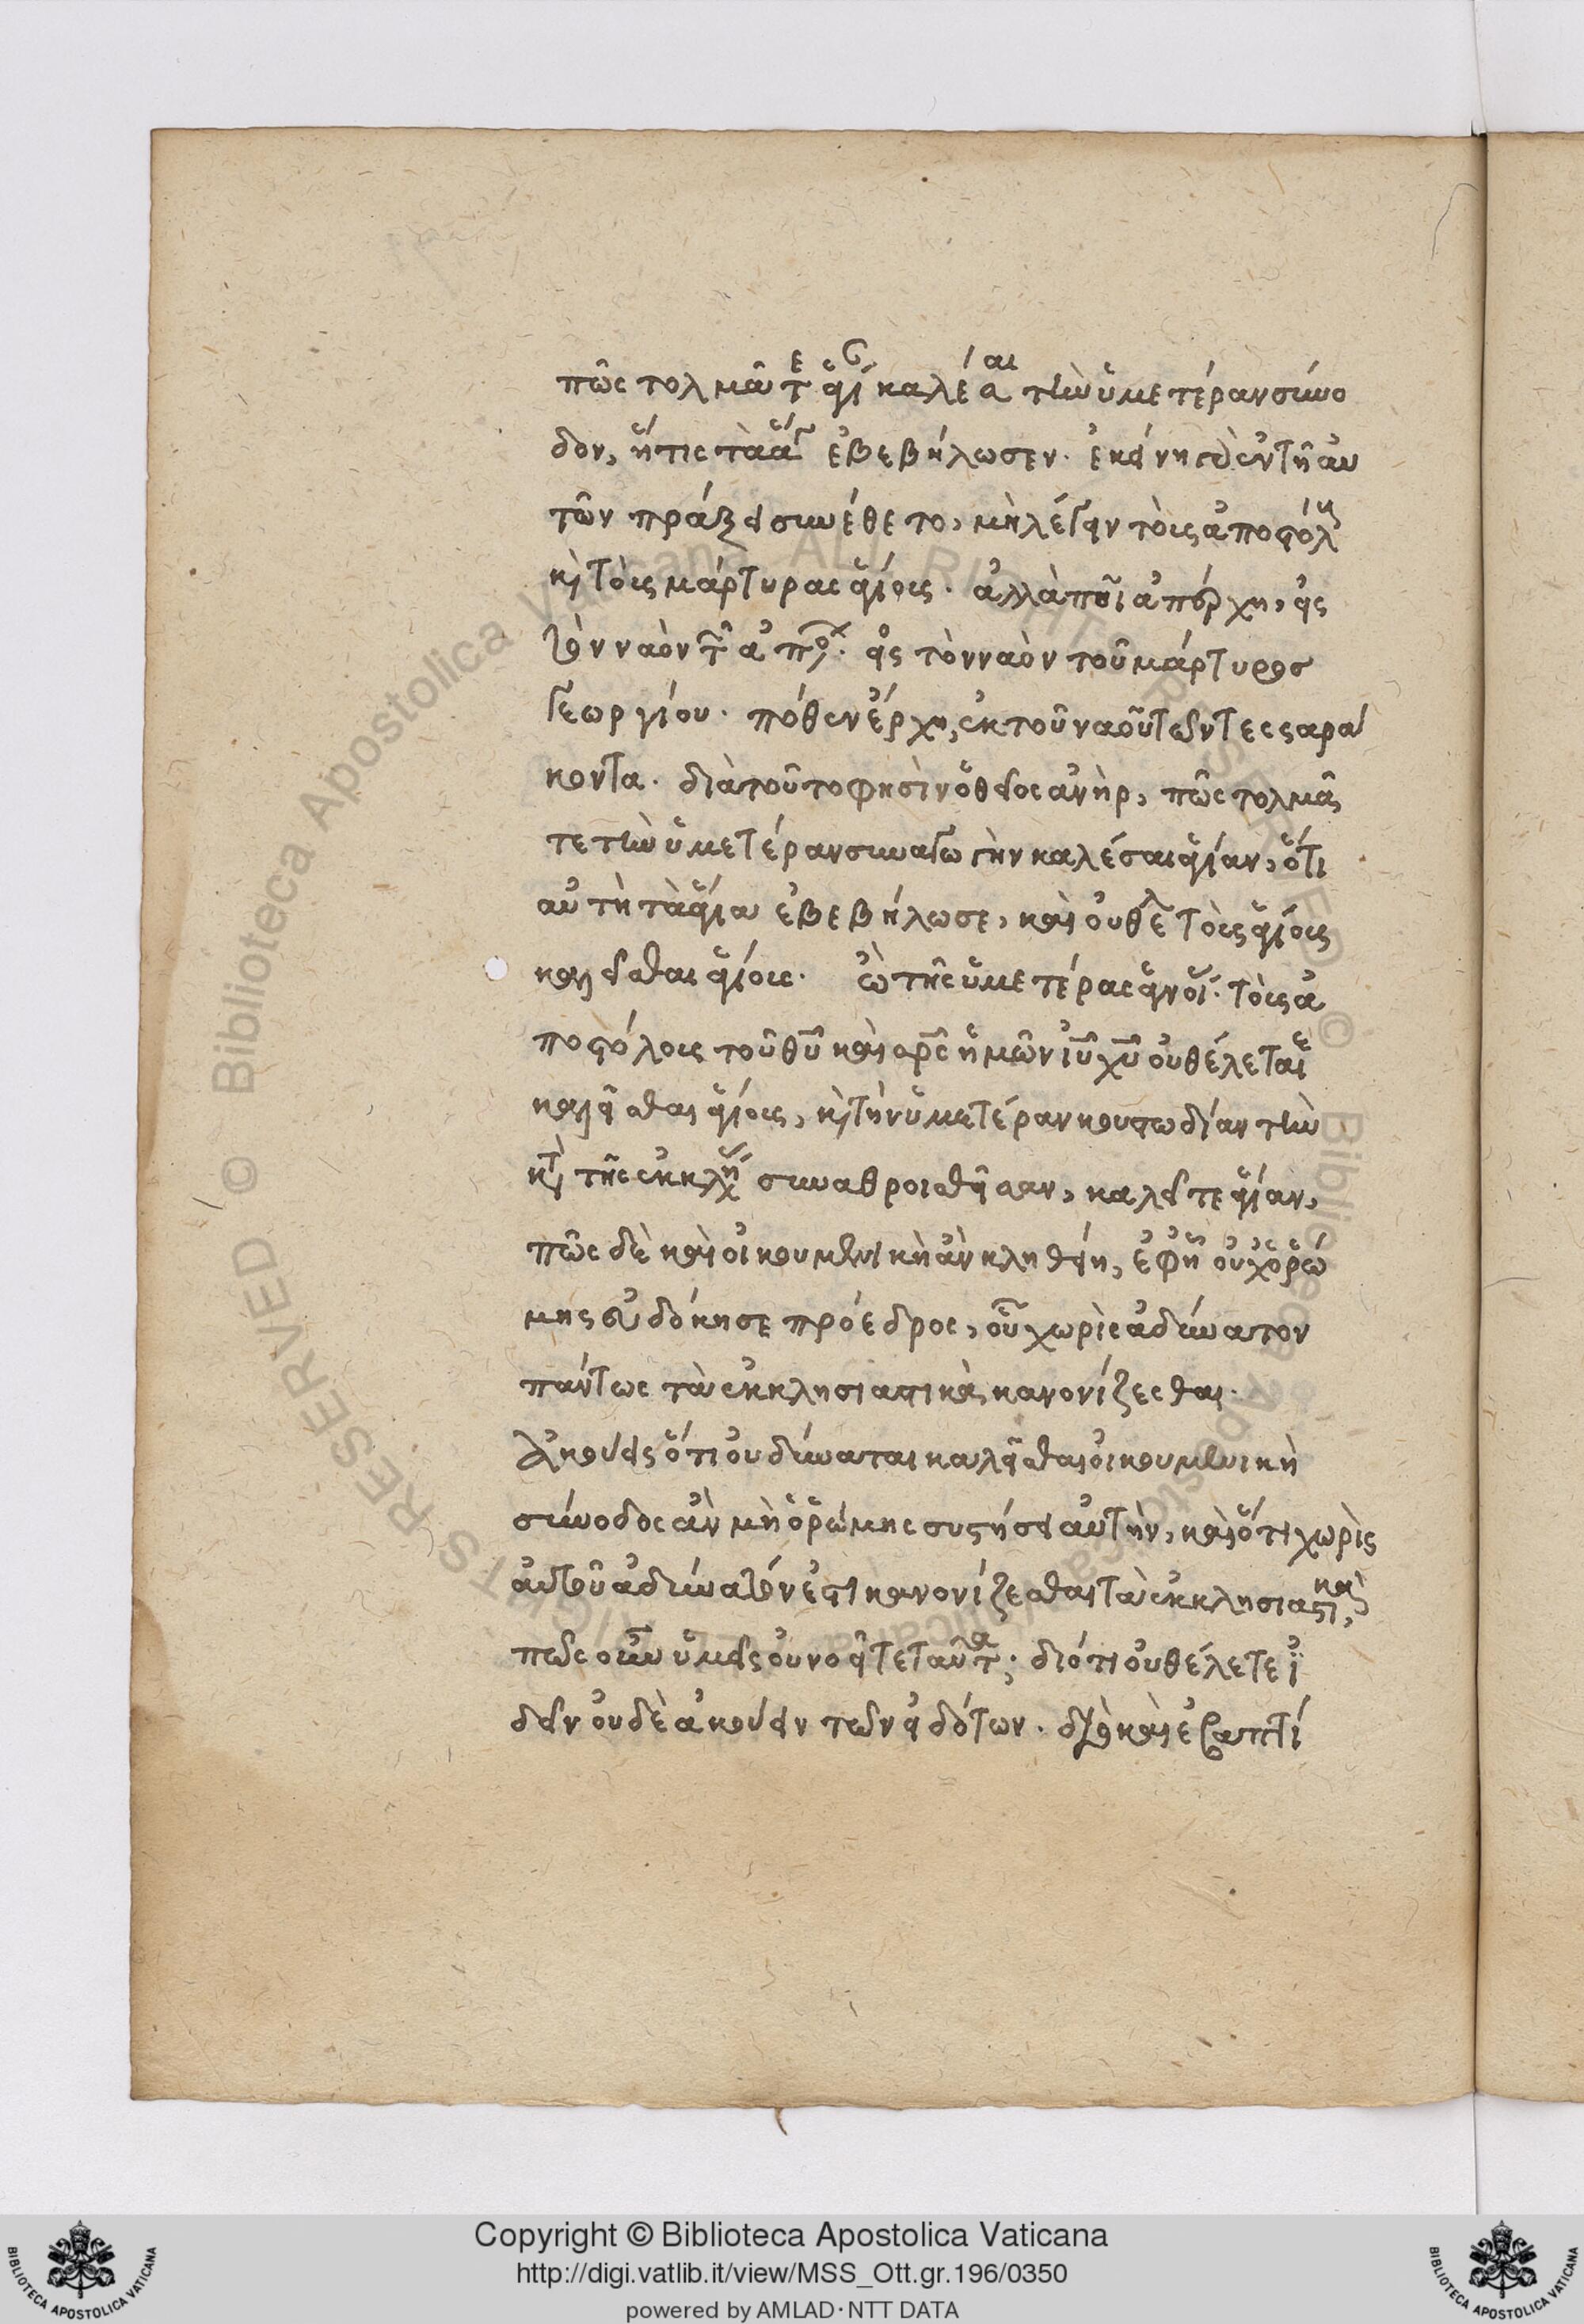 πῶς τολμᾶτε ἁγίαν καλέσαι τὴν ὑμετέραν σύνο
δον, ἥτις τὰ ἅγια ἐβεβήλωσεν. ἐκείνη δὲ ἐν τῇ αὐ
τῶν πράξει συνέθετο, μὴ λέγειν τοὺς ἀποστόλους
κὶ τοὺς μάρτυρας ἁγίους. ἀλλὰ ποῖ ἀπέρχῃ, εἰς
τὸν ναὸν τῶν ἀποστόλων. εἰς τὸν ναὸν τοῦ μάρτυρος
Γεωργίου. πόθεν ἔρχῃ, ἐκ τοῦ ναοῦ τῶν τεσσαρά
κοντα. διὰ τοῦτο φησὶν ὁ θεῖος ἀνὴρ, πῶς τολμᾶ
τε τὴν ὑμετέραν συναγωγὴν καλέσαι ἁγίαν, ὅτι
αὐτὴ τὰ ἅγια ἐβεβήλωσε, καὶ οὐ θέλει τοὺς ἁγίους
καλεῖσθαι ἁγίους. ὢ τῆς ὑμετέρας ἀνοίας. τοὺς ἀ
ποστόλους τοῦ θῦ καὶ σρς ἡμῶν ἰῦ χῦ οὐ θέλεται
καλεῖσθαι ἁγίους, κὶ τὴν ὑμετέραν κουστωδίαν τὴν
κατὰ τῆς ἐκκλησίας συναθροισθεῖσαν, καλεῖτε ἁγίαν,
πῶς δὲ καὶ οἰκουμενικὴ ἂν κληθείη, ἐφ' ᾗ οὐχ ὁ ῥώ
μης εὐδόκησε πρόεδρος, οὗ χωρὶς ἀδύνατον
πάντως τὰ ἐκκλησιαστικὰ κανονίζεσθαι.
Ἀκούεις ὅτι οὐ δύναται καλεῖσθαι οἰκουμενικὴ
σύνοδος ἂν μὴ ὁ ῥώμης συστήσει αὐτὴν, καὶ ὅτι χωρὶς
αὐτοῦ ἀδύνατόν ἐστι κανονίζεσθαι τὰ ἐκκλησιαστικὰ,
πῶς οὖν ὑμεῖς οὐ νοεῖτε ταῦτα; διότι οὐ θέλετε ἰ
δεῖν οὐδὲ ἀκούειν τῶν εἰδότων. διὸ καὶ ἐβαπτί
Copyright © Biblioteca Apostolica Vaticana
http://digi.vatlib.it/view/MSS_Ott.gr.196/0350
powered by AMLAD·NTT DATA